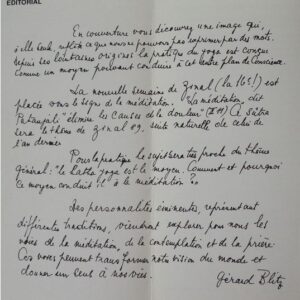 EDITORIAL
En couverture vous découvrez une image qui,
à elle seule, reflète ce que nous ne pouvons pas exprimer par des mots.
Depuis ses lointaines origines la pratique du yoga est conçue
comme un moyen pouvant conduire à cet autre plan de Conscience.
La nouvelle semaine de Zinal (la 16e!) est
placée sous le signe de la méditation. "La méditation, dit
Patanjali" élimine les causes de la douleur" (II 11) Ce sutra
sera le thème de Zinal 89, suite naturelle de celui de
l'an dernier
Pour la pratique le sujet sera très proche du thème
général: "le hatha yoga est le moyen. Comment et pourquoi
ce moyen conduit il à la méditation".
Des personnalités éminentes, représentant
différentes traditions, viendront explorer pour nous les
voies de la méditation, de la contemplation et de la prière
Ces voies peuvent transformer notre vision du monde et
donner un sens à nos vies.
Gérard Blitz